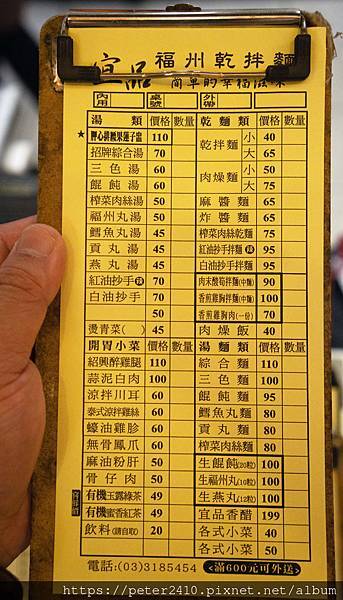 宜品 福州乾拌麵
簡單的幸福滋味
內用 桌號 外帶
湯類 價格 數量
110
招牌綜合湯 70
三色湯 50
餛飩湯 50
榨菜肉絲湯 50
福州丸湯 50
鱈魚丸湯 45
貢丸湯 45
燕丸湯 45
紅油抄手 70
白油抄手 70
50
燙青菜( ) 45
開胃小菜 價格 數量
紹興醉雞腿 110
蒜泥白肉 100
涼拌川耳 60
泰式涼拌雞絲 60
蠔油雞胗 60
無骨鳳爪 60
麻油粉肝 50
骨仔肉 50
有機玉露綠茶 49
有機蜜香紅茶 49
飲料(請自取) 20
乾麵類 價格 數量
乾拌麵 小 40
大 65
肉燥麵 小 50
大 75
麻醬麵 65
炸醬麵 65
榨菜肉絲乾麵 75
紅油抄手拌麵 95
白油抄手拌麵 95
肉末酸菇拌麵(中麵) 90
香煎雞胸拌麵(中麵) 100
香煎雞胸肉(一份) 70
肉燥飯 40
湯麵類 價格 數量
綜合麵 110
三色麵 100
餛飩麵 95
鱈魚丸麵 80
貢丸麵 80
榨菜肉絲麵 80
生餛飩(20粒) 100
生福州丸(10粒) 100
生燕丸(12粒) 100
宜品香醋 199
各式小菜 40
各式小菜 50
電話:(03)3185454
滿600元可外送
https://peter2410.pixnet.net/album